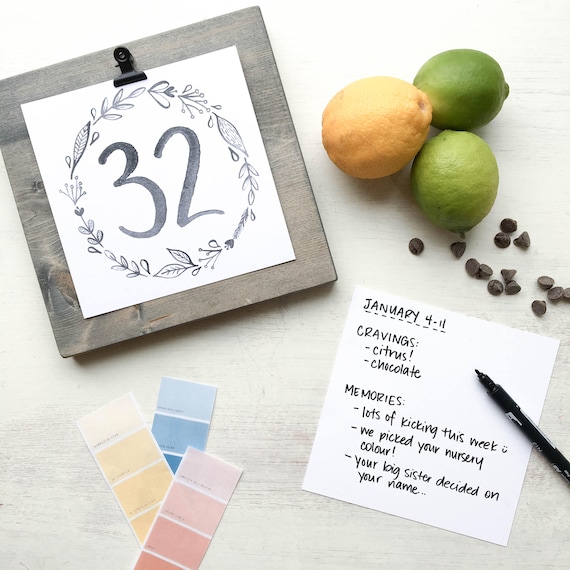 32
JANUARY 4-11
CRAVINGS:
- citrus!
- chocolate
MEMORIES:
- lots of kicking this week
- we picked your nursery
colour!
- your big sister decided on
your name...